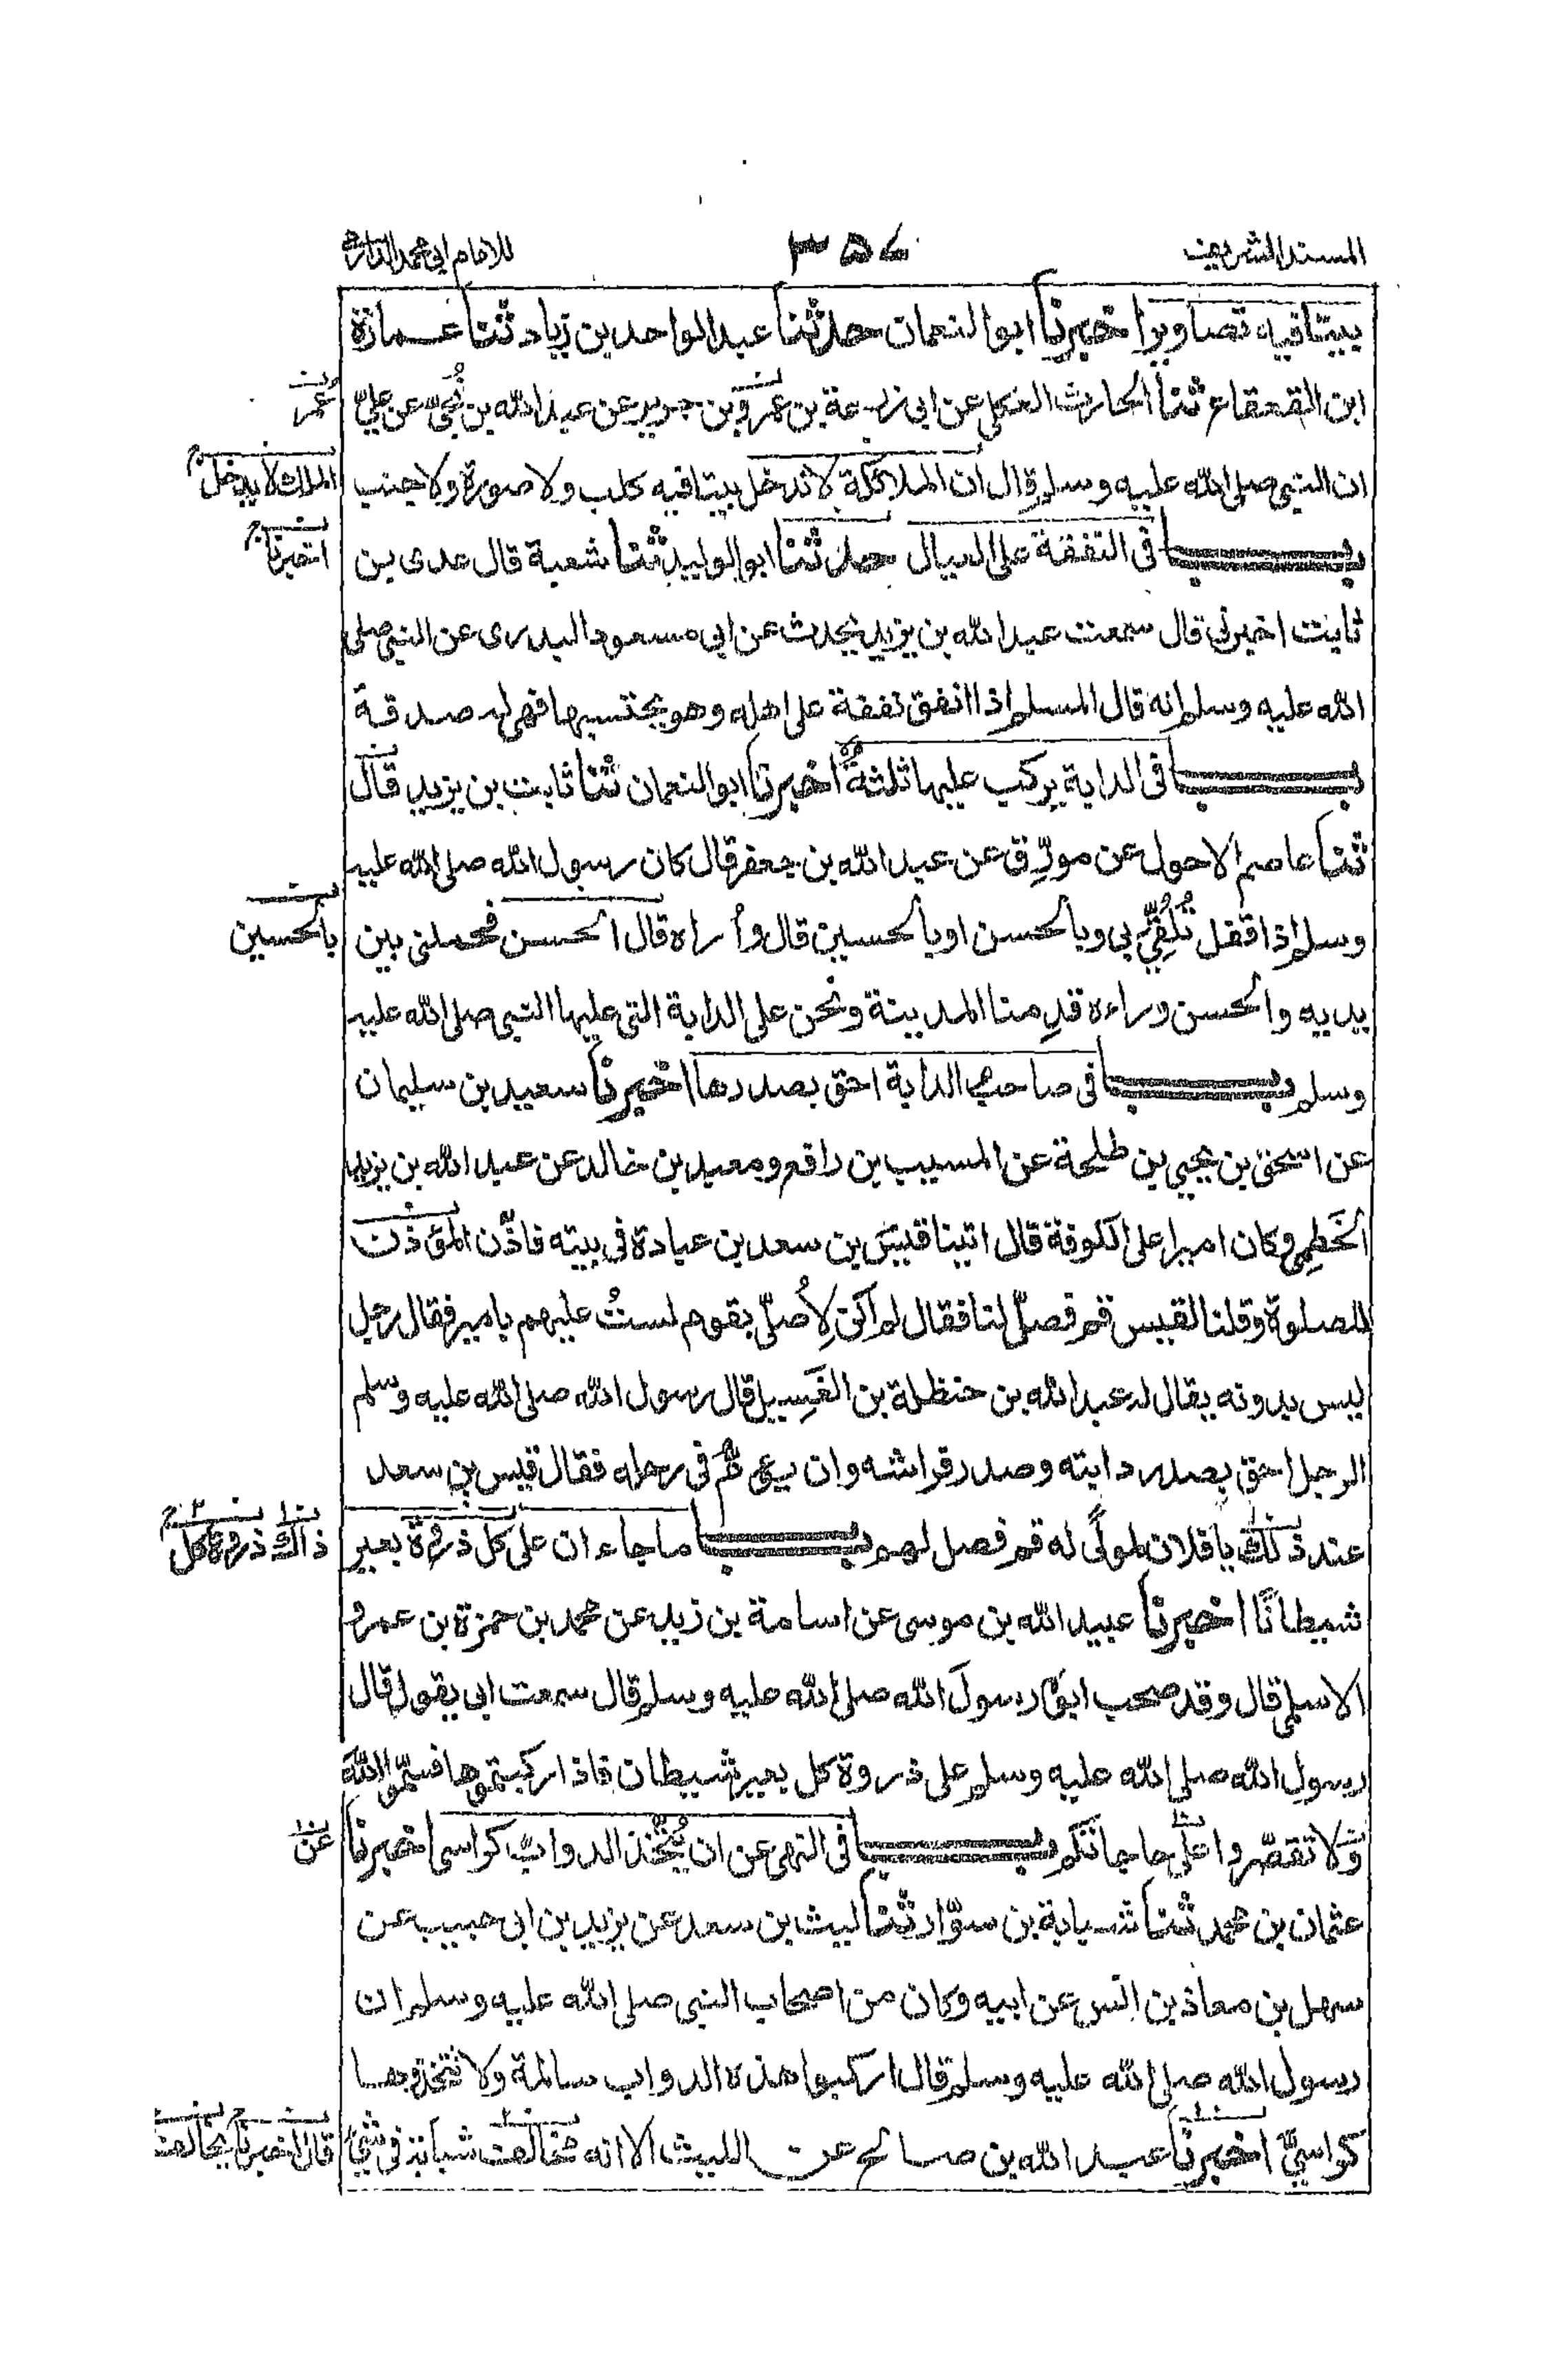 المسند الشريف ٣٥٧ للامام ابى محمد الدارمى
بيتا فيه تصاوير اخبرنا ابو النعمان حدثنا عبد الواحد بن زياد ثنا عمارة
ابن القعقاع ثنا الحارث العكلى عن ابى زرعة بن عمرو بن جرير عن عبد الله بن نُجَىّ عن علىّ
عُمر
ان النبى صلى الله عليه وسلم قال ان الملائكة لا تدخل بيتا فيه كلب ولا صورة ولا جنب
الملك لا يدخل
باب فى النفقة على العيال حدثنا ابو الوليد ثنا شعبة قال عدى بن
اخبرنا
ثابت اخبرنى قال سمعت عبد الله بن يزيد يحدث عن ابى مسعود البدرى عن النبى صلى
الله عليه وسلم انه قال المسلم اذا انفق نفقة على اهله وهو يحتسبها فهى له صدقة
باب فى الدابة يركب عليها ثلثةٌ اخبرنا ابو النعمان ثنا ثابت بن يزيد قال
ثنا عاصم الاحول عن مورِّق عن عبد الله بن جعفر قال كان رسول الله صلى الله عليه
وسلم اذا قفل تُلُقِّىَ بى وبالحسن او بالحسين قال وأُراه قال الحسن فحملنى بين
بالحسين
يديه والحسن وراءه قدِمنا المدينة ونحن على الدابة التى عليها النبى صلى الله عليه
وسلم باب فى صاحب الدابة احق بصدرها اخبرنا سعيد بن سليمان
عن اسحق بن يحيى بن طلحة عن المسيب بن رافع ومعبد بن خالد عن عبد الله بن يزيد
الخَطمِى وكان اميرا على الكوفة قال اتينا قيسَ بن سعد بن عبادة فى بيته فاذّن المؤذن
للصلوة وقلنا لقيس قم فصلّ لنا فقال لم اكن لِأُصلّى بقوم لستُ عليهم بامير فقال رجل
ليس بدونه يقال له عبد الله بن حنظلة بن الغَسِيل قال رسول الله صلى الله عليه وسلم
الرجل احق بصدر دابته وصدر فراشه وان يؤم فى رحله فقال قيس بن سعد
عند ذلك يا فلان لمولًى له قم فصل لهم باب ما جاء ان على كل ذروة بعير
ذاك ذروة كل
شيطانًا اخبرنا عبيد الله بن موسى عن اسامة بن زيد عن محمد بن حمزة بن عمرو
الاسلمى قال وقد صحب ابوه رسولَ الله صلى الله عليه وسلم قال سمعت ابى يقول قال
رسول الله صلى الله عليه وسلم على ذروة كل بعير شيطان فاذا ركبتموها فسَمُّوا اللهَ
ولا تقصّروا على حاجاتكم باب فى النهى عن ان يُتّخذ الدوابّ كراسى اخبرنا
عن
عثمان بن محمد ثنا شبابة بن سوّار ثنا ليث بن سعد عن يزيد بن ابى حبيب عن
سهل بن معاذ بن انس عن ابيه وكان من اصحاب النبى صلى الله عليه وسلم ان
رسول الله صلى الله عليه وسلم قال اركبوا هذه الدواب سالمة ولا تتخذوها
كراسىَّ اخبرنا عبد الله بن صالح عن الليث الا انه خالف شبابة فى شئ
قال اخبرنا يخالف